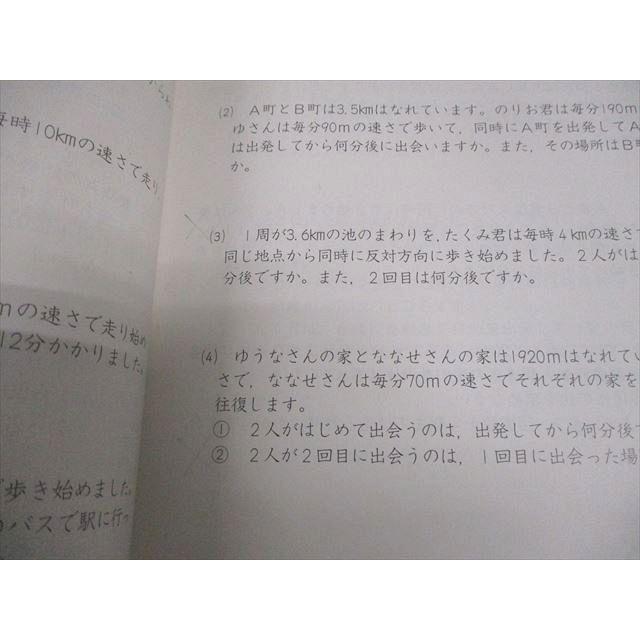 毎時10kmの速さで走り
mの速さで走り始め
12分かかりました。
歩き始めました。
バスで駅に行っ
(2) A町とB町は3.5kmはなれています。のりお君は毎分190m
ゆさんは毎分90mの速さで歩いて，同時にA町を出発してA
は出発してから何分後に出会いますか。また，その場所はB町
か。
(3) 1周が3.6kmの池のまわりを，たくみ君は毎時4kmの速さで
同じ地点から同時に反対方向に歩き始めました。2人がは
分後ですか。また，2回目は何分後ですか。
(4) ゆうなさんの家とななせさんの家は1920mはなれてい
さで，ななせさんは毎分70mの速さでそれぞれの家を
往復します。
① 2人がはじめて出会うのは，出発してから何分後で
② 2人が2回目に出会うのは，1回目に出会った場